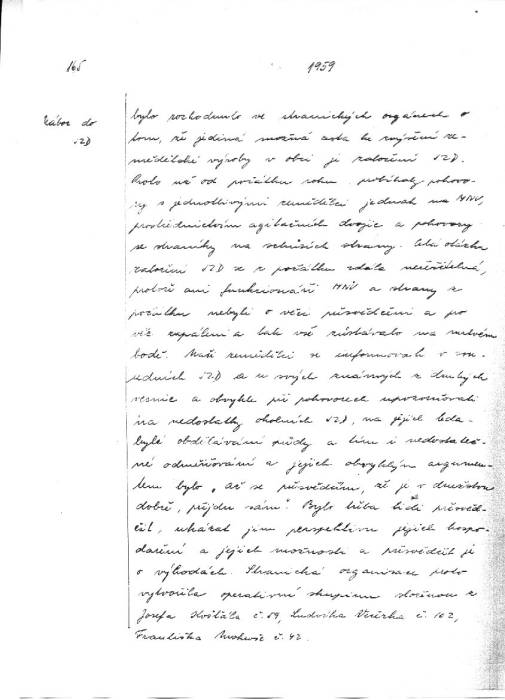 165
1959
Nábor do
JZD
bylo rozhodnuto ve stranických orgánech o
tom, že jediná možná cesta ke zvýšení ze-
mědělské výroby v obci je založení JZD.
Proto už od počátku roku probíhaly pohovo-
ry s jednotlivými zemědělci jednak na MNV,
prostřednictvím agitačních dvojic a pohovory
se straníky na schůzích strany. Celá otázka
založení JZD se z počátku zdála neřešitelná,
protože ani funkcionáři MNV a strany z
počátku nebyli o věci přesvědčeni a pro
věc zapáleni a tak vše zůstávalo na mrtvém
bodě. Naši zemědělci se informovali v sou-
sedních JZD a u svých známých z druhých
vesnic a obvykle při pohovorech upozorňovali
na nedostatky okolních JZD, na jejich leda-
bylé obdělávání půdy a tím i nedostateč-
né odměňování a jejich obvyklým argumen-
tem bylo „až se přesvědčím, že je v družstvu
dobře, přijdu sám". Bylo třeba lidi přesvěd-
čit, ukázat jim perspektivu jejich hospo-
daření a jejich možnosti a přesvědčit je
o výhodách. Stranická organisace proto
vytvořila operativní skupinu složenou z
Josefa Košťála č. 59, Ludvíka č. 102,
Františka č. 42.